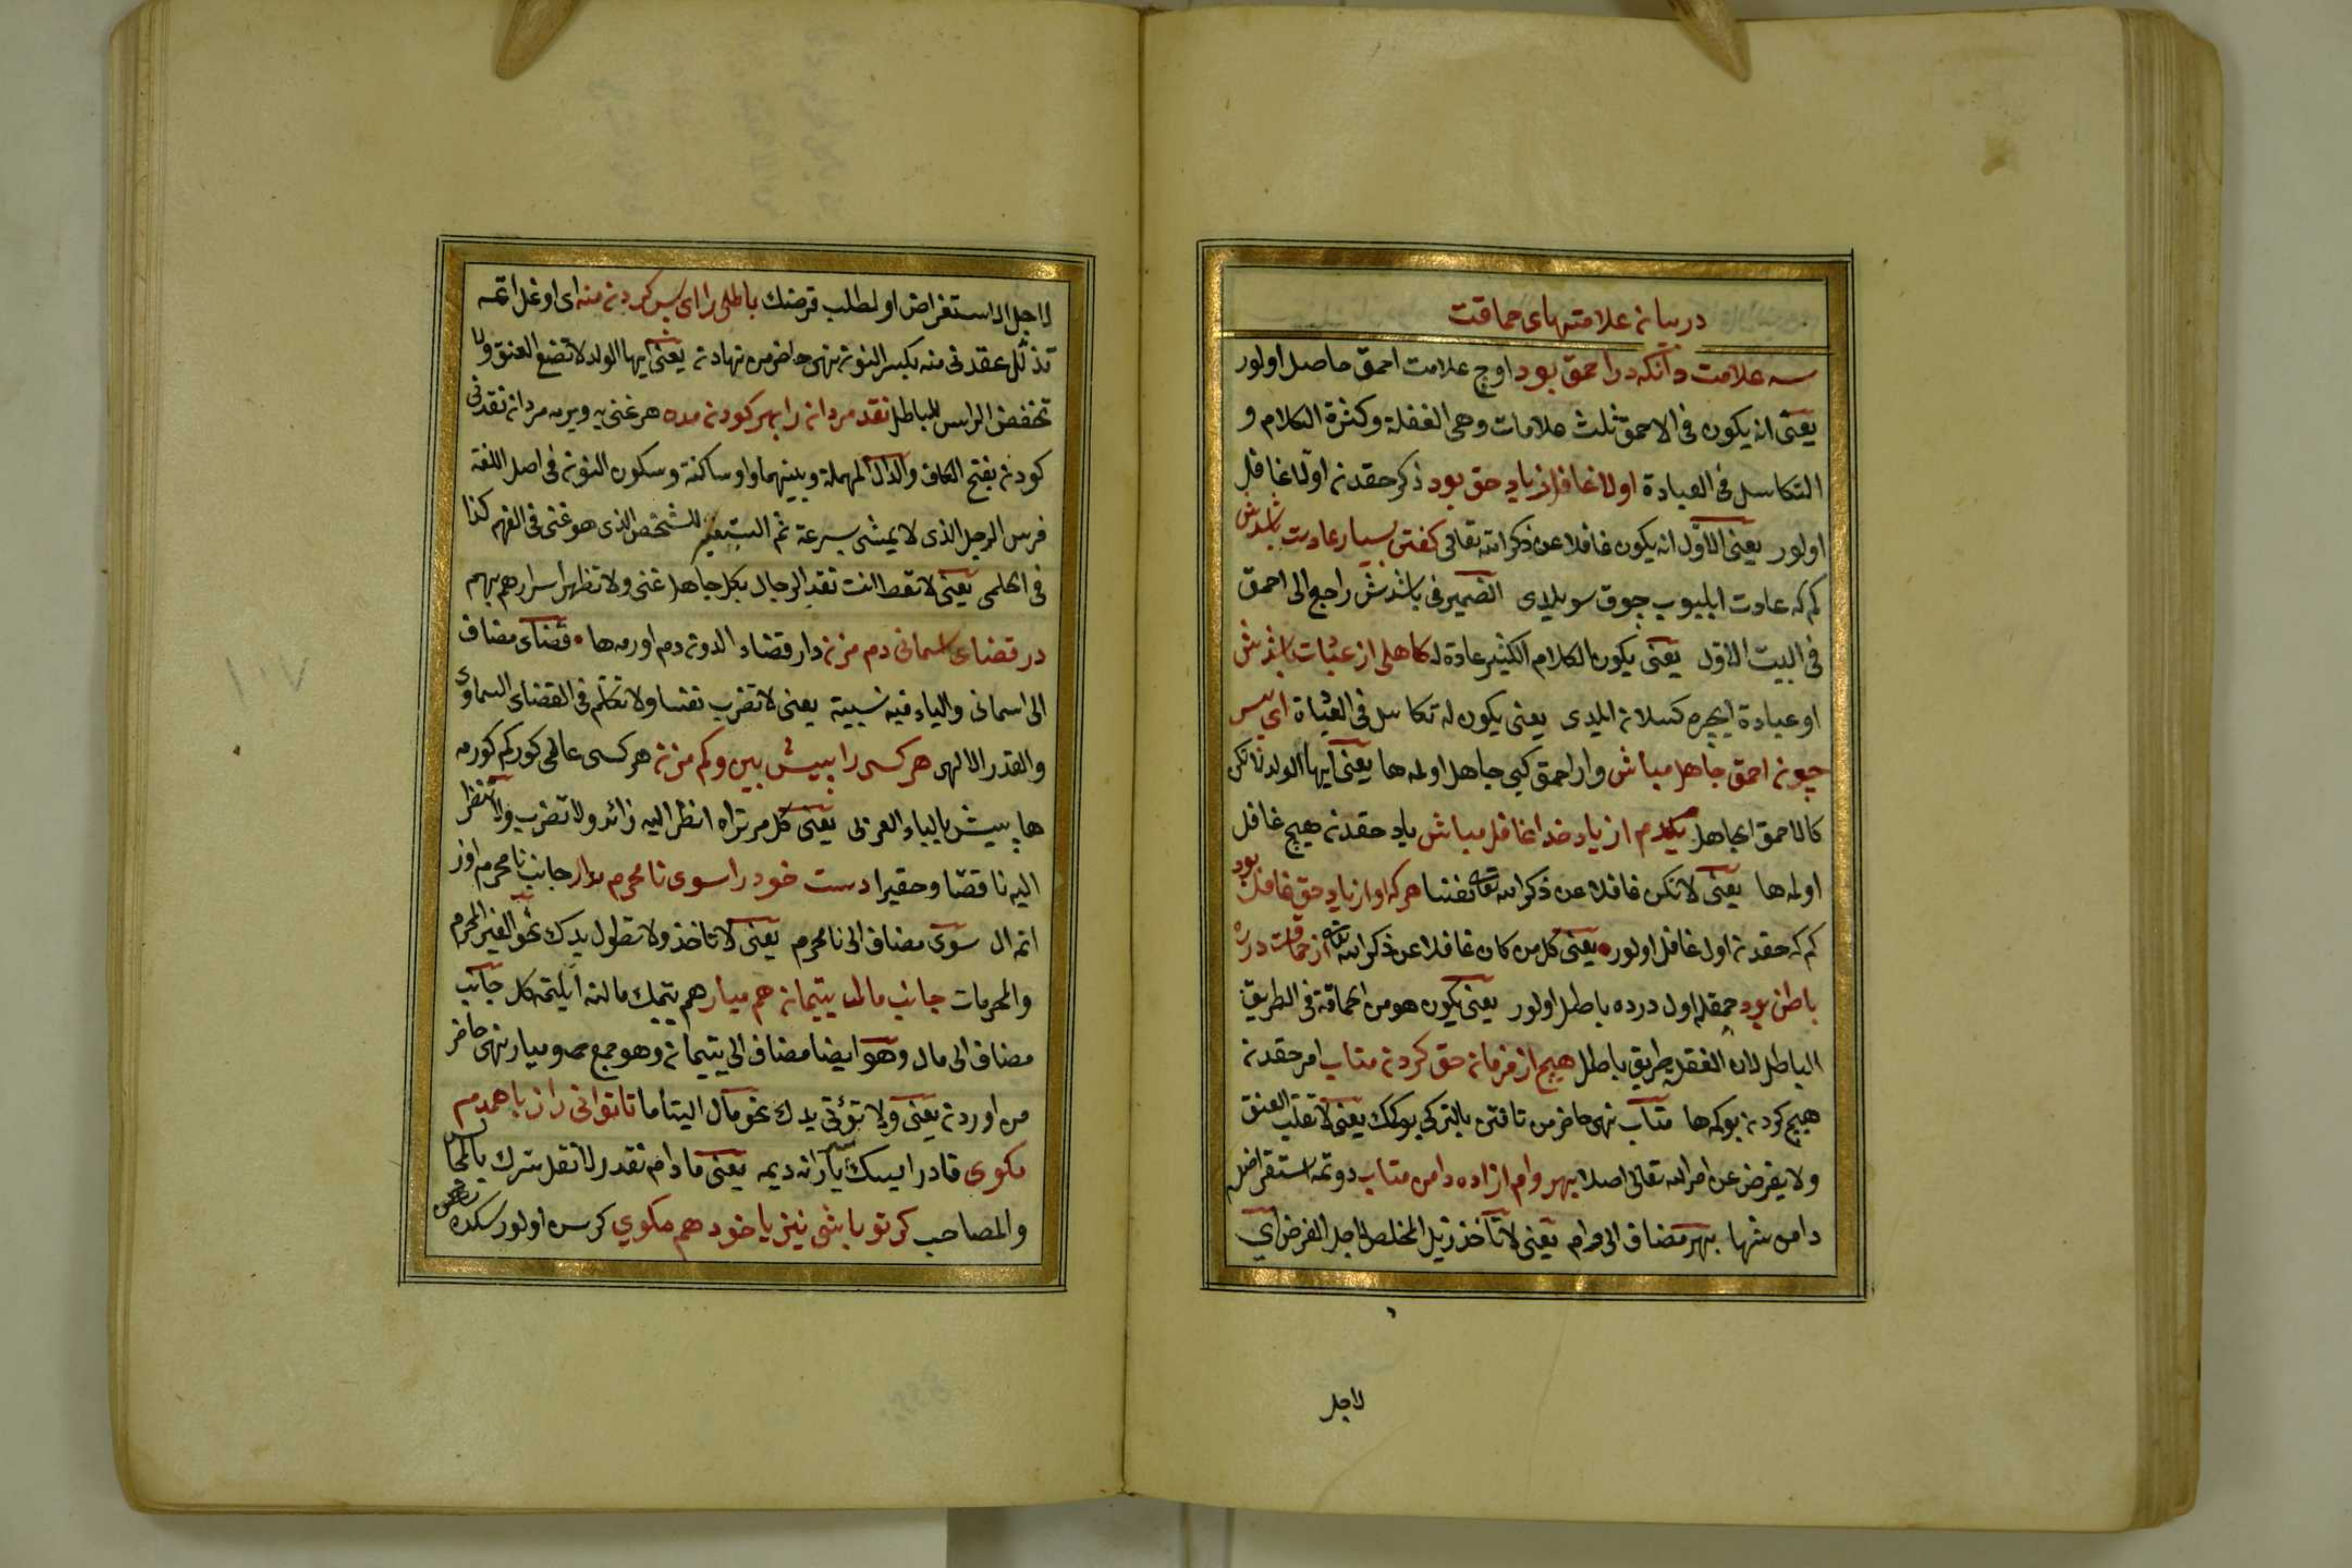 در بیان علامتهای حماقت
سه علامت دانکه در احمق بود اوچ علامت احمق حاصل اولور
یعنی انه یکون فی الاحمق ثلث علامات وهی الغفلة وکثرة الکلام و
التکاسل فی العبادة اولا غافل از یاد حق بود ذکر حقدن اولا غافل
اولور یعنی الاول انه یکون غافلا عن ذکر الله تعالی کفتن بسیار عادت باشدش
کم که عادت ایلیوب چوق سویلدی الضمیر فی باشدش راجع الی احمق
فی البیت الاول یعنی یکون الکلام الکثیر عادة له کاهلی از عبادت باشدش
او عبادة ایچره کسلان ایلدی یعنی یکون له تکاسل فی العبادة ای پسر
چون احمق جاهل مباش وار احمق کبی جاهل اولمه ها یعنی ایها الولد لا تکن
کالاحمق الجاهل یکدم از یاد خدا غافل مباش یاد حقدن هیچ غافل
اولمه ها یعنی لا تکن غافلا عن ذکر الله تعالی نفسا هر که او از یاد حق غافل بود
کم که حقدن اول غافل اولور یعنی کل من کان غافلا عن ذکر الله تعالی از حماقت در ره
باطل بود حمقله اول درده باطل اولور یعنی یکون هو من الحماقة فی الطریق
الباطل لان الغفلة طریق باطل هیچ از فرمان حق کردن متاب امر حقدن
هیچ کردن بوکمه ها متاب نهی حاضر من تافتن بالترکی بوکمک یعنی لا تقلب العنق
ولا یعرض عن امر الله تعالی اصلا بهر وام ازاده دامن متاب دوتمه استقراض
دامن شها بهر مضاف الی وام یعنی لا تأخذ ذیل المخلص لاجل القرض ای
لاجل
لاجل الاستقراض او لطلب قرضک باطلی را ای پسر کردن منه ای اوغل اتمه
تذلل عقدنی منه بکسر النون نهی حاضر من نهادن یعنی ایها الولد لا تضع العنق ولا
تخفض الراس للباطل نقد مردان را بهر کودن مده هر غنی یه ویرمه مردان نقدنی
کودن بفتح الکاف والدال المهملة وبینهما واو ساکنة وسکون النون فی اصل اللغة
فرس الرجل الذی لا یمشی بسرعة ثم استعیر للشخص الذی هو غنی فی الفهم کذا
فی الحلمی یعنی لا تعط انت نقد الرجال بکل جاهل غنی ولا تظهر اسرارهم بهم
در قضای اسمانی دم مزن دار قضاء الدون دم اورمه ها قضای مضاف
الی اسمانی والیاء فیه نسبیة یعنی لا تضرب نفسا ولا تتکلم فی القضای السماوی
والقدر الالهی هر کسی را بیش بین وکم مزن هر کسی عالی کور کم کورمه
ها بیش بالباء العربی یعنی کل مر تراه انظر الیه زائد ولا تضرب ولا تنظر
الیه ناقصا وحقیرا دست خود را سوی نامحرم مدار جانب نامحرم اوز
اتمه ال سوی مضاف الی نامحرم یعنی لا تأخذ ولا تطول یدک نحو الغیر المحرم
والمحرمات جانب مال یتیمان هم میار هم یتیمک مالنه ایلتمه کل جانب
مضاف الی مال وهو ایضا مضاف الی یتیمان وهو جمع میار نهی حاضر
من اوردن یعنی ولا تؤتی یدک نحو مال الیتاما تا توانی راز با همدم
مکوی قادر ایسک یارانه دیمه یعنی ما دام تقدر لا تقل سرک بالجالس
والمصاحب کر تو باشی نیز با خود هم مکوی کرسن اولور سکده